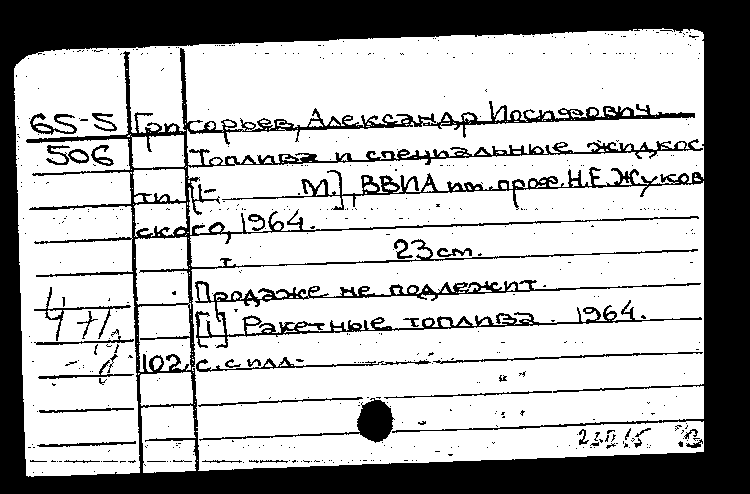 65-5 Григорьев, Александр Иосифович.
506 Топлива и специальные жидкос
ти. [1-, М.], ВВИА им. проф. Н.Е. Жуков
ского, 1964.
т. 23 см.
Продаже не подлежит.
[1] Ракетные топлива. 1964.
102 с. с илл.